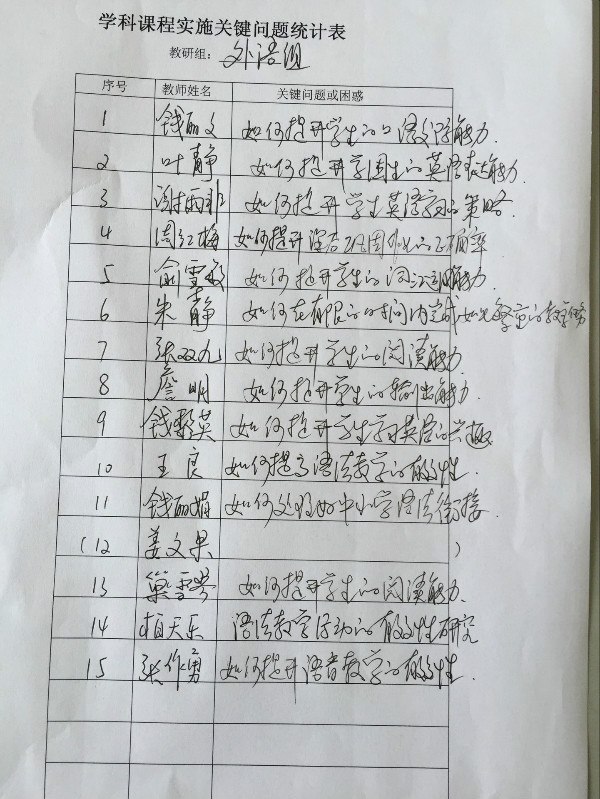 学科课程实施关键问题统计表
教研组：外语组
序号 教师姓名 关键问题或困惑
1 钱丽文 如何提升学生的口语交际能力.
2 叶静 如何提升学困生的英语表达能力.
3 谢雨非 如何提升学生英语学习的策略.
4 周红梅 如何提升课后巩固作业的正确率
5 俞雪敏 如何提升学生的词汇理解能力.
6 朱静 如何在有限的时间内完成如此繁重的教学任务
7 张双九 如何提升学生的阅读能力.
8 詹明 如何提升学生的输出能力.
9 钱黎英 如何提升学生学习英语的兴趣
10 王良 如何提高语法教学的有效性.
11 钱丽娟 如何处理好中小学语法衔接.
(12 姜文果 )
13 如何提升学生的阅读能力.
14 柏天乐 语法教学活动的有效性研究
15 张作勇 如何提升语音教学的有效性.